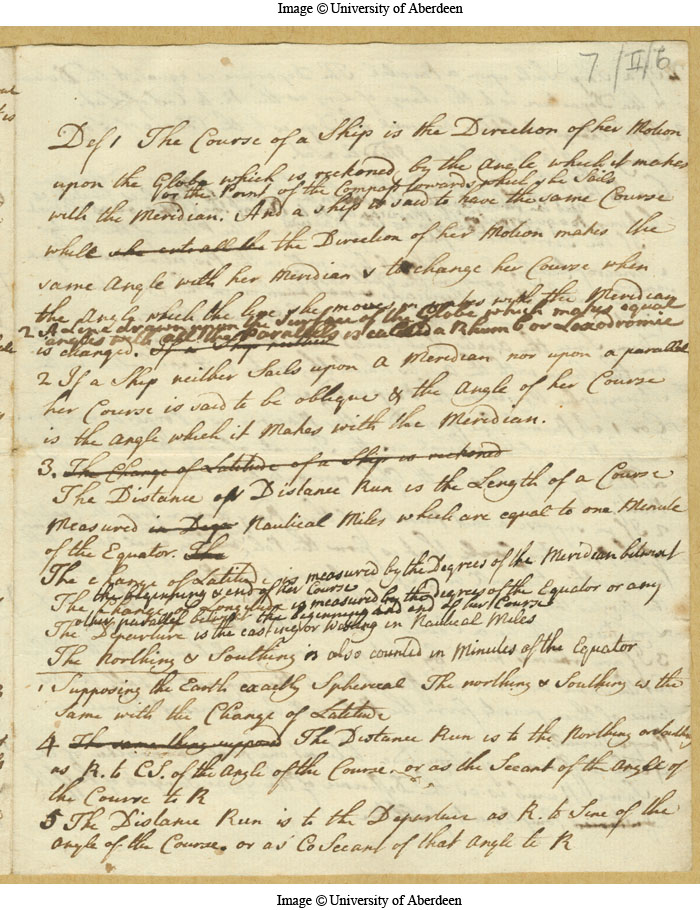 Image © University of Aberdeen
7/II/6
Def 1 The Course of a Ship is the Direction of her Motion
upon the Globe which is reckoned by the Angle which it makes
or the Point of the Compass towards which she Sails
with the Meridian. And a ship is said to have the same Course
while she the Direction of her Motion makes the
same Angle with her Meridian & to change her Course when
the Angle which the line she moves in makes with the Meridian
2 A Line drawn upon the Surface of the Globe which makes equal
angles with all the Parallels is called a Rhumb or Loxodromie
is changed. If a Ship
2 If a Ship neither Sails upon a Meridian nor upon a parallel
her Course is said to be oblique & the Angle of her Course
is the Angle which it Makes with the Meridian.
3. The Change of Latitude of a Ship is reckoned
The Distance or Distance Run is the Length of a Course
Measured in Degs Nautical Miles which are equal to one Minute
of the Equator. The
The change of Latitude is measured by the Degrees of the Meridian betwixt
the beginning & end of her Course
The Change of Longitude is measured by the Degrees of the Equator or any
other parallel betwixt the beginning and end of her Course
The Departure is the easting or Westing in Nautical Miles
The Northing & Southing is also counted in Minutes of the Equator
1 Supposing the Earth exactly Spherical The northing & Southing is the
Same with the Change of Latitude
4 The same thing The Distance Run is to the Northing or Southing
as R. to C.S. of the Angle of the Course. or as the Secant of the Angle of
the Course to R
5 The Distance Run is to the Departure as R. to Sine of the
Angle of the Course. or as CoSecant of that Angle to R
Image © University of Aberdeen